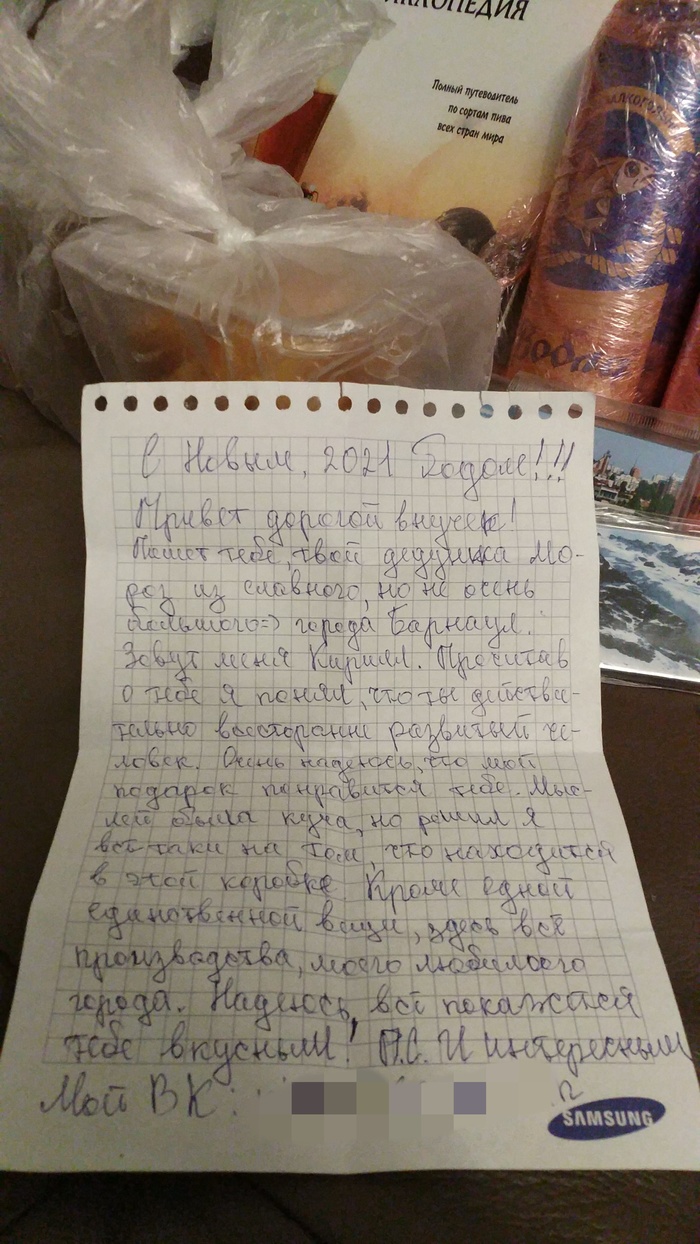 КЛОПЕДИЯ
Полный путеводитель
по сортам пива
всех стран мира
С Новым, 2021 Годом!!!
Привет дорогой внучек!
Пишет тебе, твой дедушка Мо-
роз из славного, но не очень
большого=) города Барнаул.
Зовут меня Кирилл. Прочитав
о тебе я понял, что ты действи-
тельно всесторонне развитый че-
ловек. Очень надеюсь, что мой
подарок понравится тебе. Мыс-
лей была куча, но решил я
всё таки на том, что находится
в этой коробке. Кроме одной
единственной вещи, здесь всё
производства, моего любимого
города. Надеюсь, всё покажется
тебе вкусным! П.С. И интересным
Мой ВК:
SAMSUNG